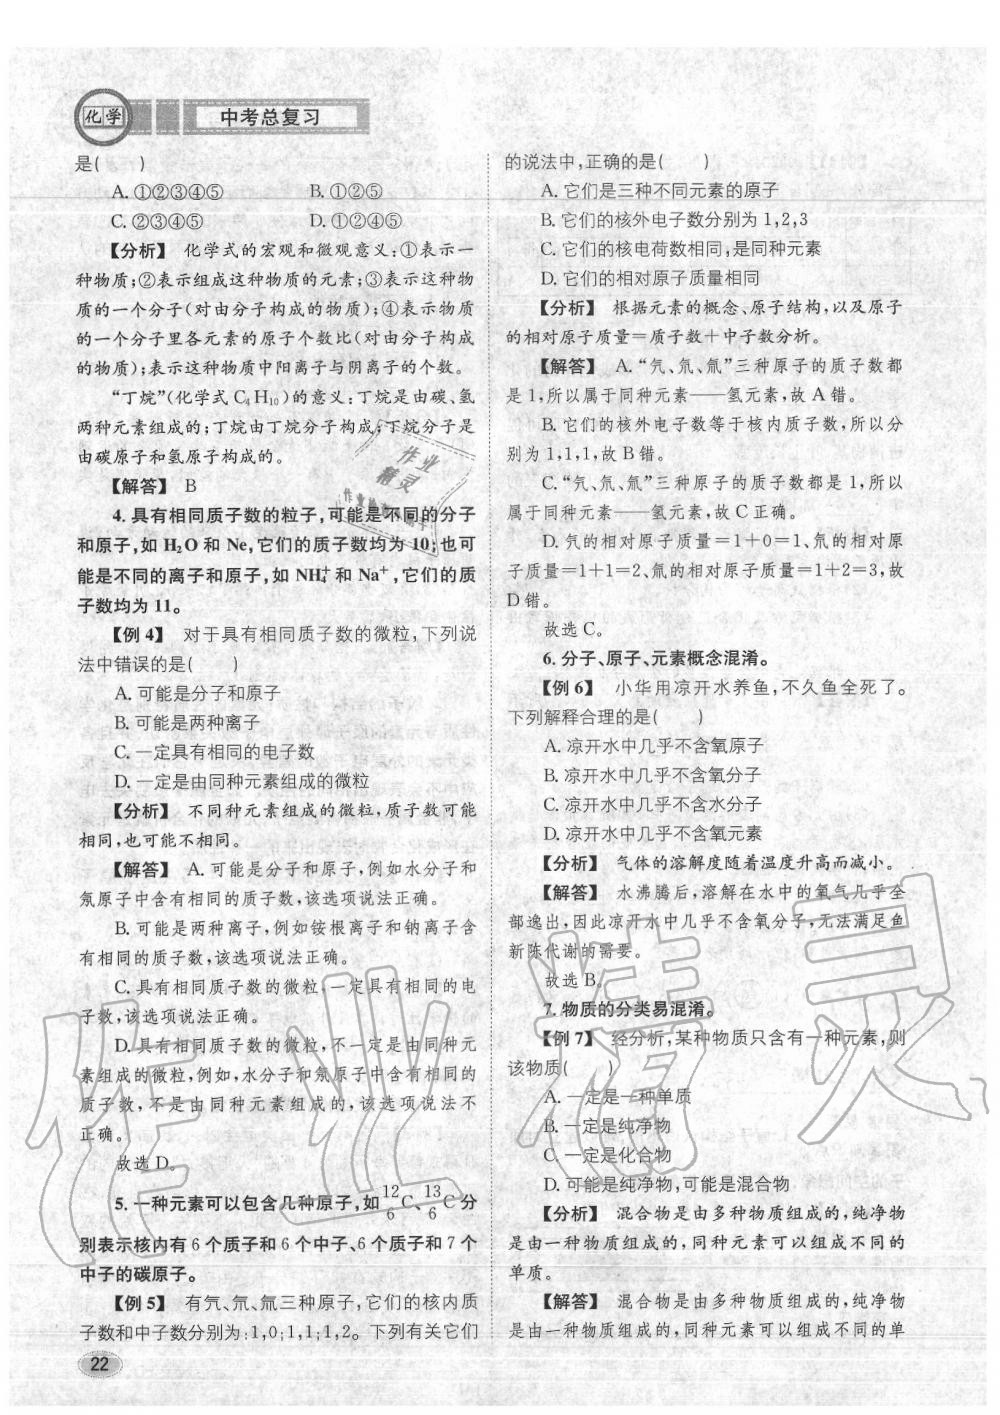 化学
中考总复习
是(　　)
A. ①②③④⑤　　B. ①②⑤
C. ②③④⑤　　D. ①②④⑤
【分析】　化学式的宏观和微观意义：①表示一
种物质；②表示组成这种物质的元素；③表示这种物
质的一个分子(对由分子构成的物质)；④表示物质
的一个分子里各元素的原子个数比(对由分子构成
的物质)；表示这种物质中阳离子与阴离子的个数。
“丁烷”(化学式 C₄H₁₀)的意义：丁烷是由碳、氢
两种元素组成的；丁烷由丁烷分子构成；丁烷分子是
由碳原子和氢原子构成的。
【解答】　B
4. 具有相同质子数的粒子，可能是不同的分子
和原子，如 H₂O 和 Ne，它们的质子数均为 10；也可
能是不同的离子和原子，如 NH₄⁺ 和 Na⁺，它们的质
子数均为 11。
【例 4】　对于具有相同质子数的微粒，下列说
法中错误的是(　　)
A. 可能是分子和原子
B. 可能是两种离子
C. 一定具有相同的电子数
D. 一定是由同种元素组成的微粒
【分析】　不同种元素组成的微粒，质子数可能
相同，也可能不相同。
【解答】　A. 可能是分子和原子，例如水分子和
氖原子中含有相同的质子数，该选项说法正确。
B. 可能是两种离子，例如铵根离子和钠离子含
有相同的质子数，该选项说法正确。
C. 具有相同质子数的微粒，一定具有相同的电
子数，该选项说法正确。
D. 具有相同质子数的微粒，不一定是由同种元
素组成的微粒，例如，水分子和氖原子中含有相同的
质子数，不是由同种元素组成的，该选项说法不
正确。
故选 D。
5. 一种元素可以包含几种原子，如 ¹²₆C、¹³₆C 分
别表示核内有 6 个质子和 6 个中子、6 个质子和 7 个
中子的碳原子。
【例 5】　有氕、氘、氚三种原子，它们的核内质
子数和中子数分别为：1,0；1,1；1,2。下列有关它们
22
的说法中，正确的是(　　)
A. 它们是三种不同元素的原子
B. 它们的核外电子数分别为 1,2,3
C. 它们的核电荷数相同，是同种元素
D. 它们的相对原子质量相同
【分析】　根据元素的概念、原子结构，以及原子
的相对原子质量＝质子数＋中子数分析。
【解答】　A. “氕、氘、氚”三种原子的质子数都
是 1，所以属于同种元素——氢元素，故 A 错。
B. 它们的核外电子数等于核内质子数，所以分
别为 1,1,1，故 B 错。
C. “氕、氘、氚”三种原子的质子数都是 1，所以
属于同种元素——氢元素，故 C 正确。
D. 氕的相对原子质量＝1＋0＝1、氘的相对原
子质量＝1＋1＝2、氚的相对原子质量＝1＋2＝3，故
D 错。
故选 C。
6. 分子、原子、元素概念混淆。
【例 6】　小华用凉开水养鱼，不久鱼全死了。
下列解释合理的是(　　)
A. 凉开水中几乎不含氧原子
B. 凉开水中几乎不含氧分子
C. 凉开水中几乎不含水分子
D. 凉开水中几乎不含氧元素
【分析】　气体的溶解度随着温度升高而减小。
【解答】　水沸腾后，溶解在水中的氧气几乎全
部逸出，因此凉开水中几乎不含氧分子，无法满足鱼
新陈代谢的需要。
故选 B。
7. 物质的分类易混淆。
【例 7】　经分析，某种物质只含有一种元素，则
该物质(　　)
A. 一定是一种单质
B. 一定是纯净物
C. 一定是化合物
D. 可能是纯净物，可能是混合物
【分析】　混合物是由多种物质组成的，纯净物
是由一种物质组成的，同种元素可以组成不同的
单质。
【解答】　混合物是由多种物质组成的，纯净物
是由一种物质组成的，同种元素可以组成不同的单
作业
精灵
作业精灵